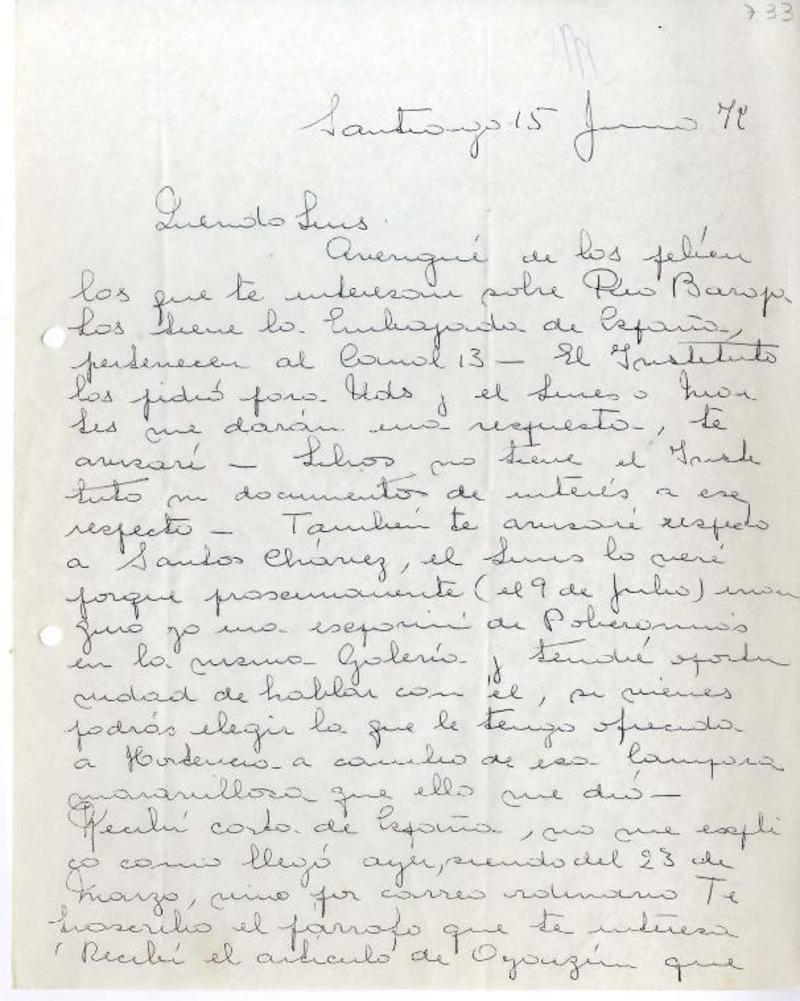 733
Santiago 15 Junio 72
Querido Luis.
Averigüé de los pelícu
las que te interesan sobre Pío Baroja
Los tiene la Embajada de España,
pertenecen al Canal 13 — El Instituto
los pidió para Uds y el lunes o mar
tes me darán una respuesta, te
avisaré — Libros no tiene el Insti
tuto ni documentos de interés a ese
respecto — También te avisaré respecto
a Santos Chávez, el lunes lo veré
porque proximamente (el 9 de Julio) inau
guro yo una exposición de
en la misma Galería y tendré oportu
nidad de hablar con él, si vienes
podrás elegir la que le tengo ofrecida
a Hortencia a cambio de esa lámpara
maravillosa que ella me dió —
Recibí carta de España, no me expli
co como llegó ayer, siendo del 23 de
Marzo, vino por correo ordinario Te
trascribo el párrafo que te interesa
"Recibí el artículo de Oyarzún que